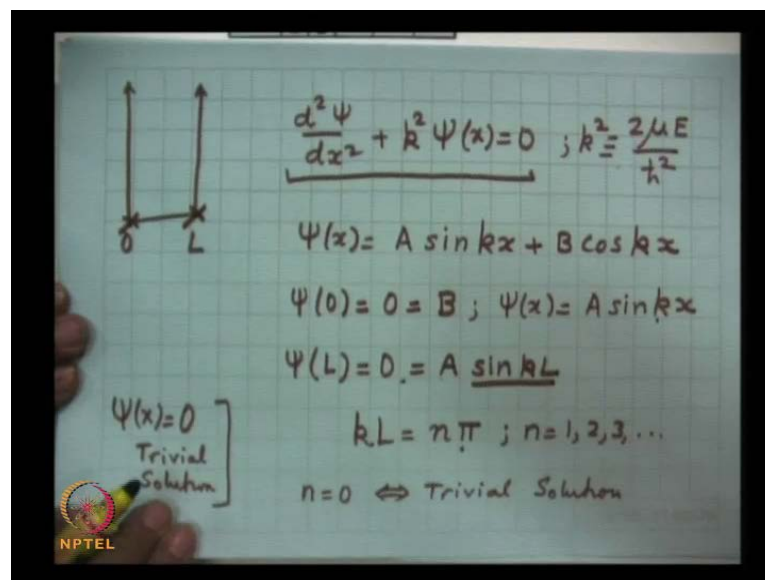 d²Ψ/dx² + k² Ψ(x) = 0 ; k² ≡ 2μE/ħ²
0 L
Ψ(x) = A sin kx + B cos kx
Ψ(0) = 0 = B ; Ψ(x) = A sin kx
Ψ(L) = 0 . = A sin kL
kL = nπ ; n = 1, 2, 3, ...
n = 0 ⇔ Trivial Solution
Ψ(x) = 0
Trivial
Solution
NPTEL